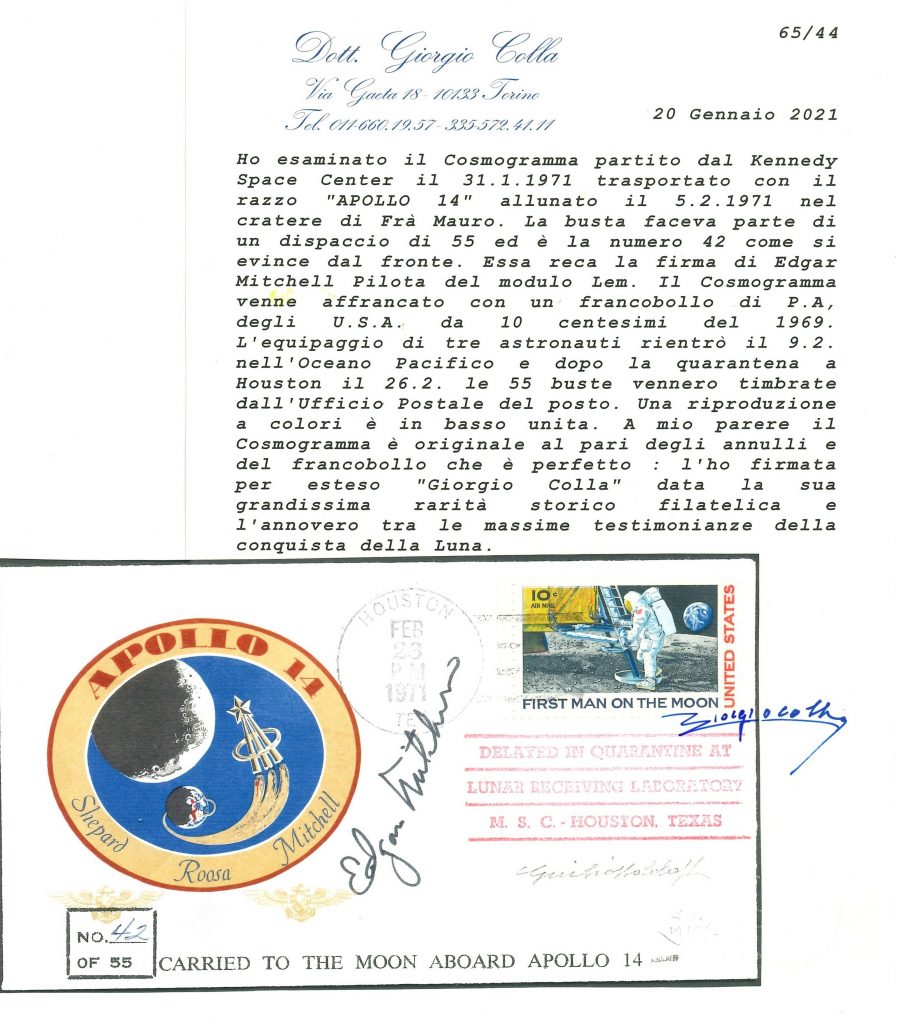 65/44
Dott. Giorgio Colla
Via Gaeta 18 - 10133 Torino
Tel. 011-660.19.57 - 335-572.41.11
20 Gennaio 2021
Ho esaminato il Cosmogramma partito dal Kennedy
Space Center il 31.1.1971 trasportato con il
razzo "APOLLO 14" allunato il 5.2.1971 nel
cratere di Frà Mauro. La busta faceva parte di
un dispaccio di 55 ed è la numero 42 come si
evince dal fronte. Essa reca la firma di Edgar
Mitchell Pilota del modulo Lem. Il Cosmogramma
venne affrancato con un francobollo di P.A,
degli U.S.A. da 10 centesimi del 1969.
L'equipaggio di tre astronauti rientrò il 9.2.
nell'Oceano Pacifico e dopo la quarantena a
Houston il 26.2. le 55 buste vennero timbrate
dall'Ufficio Postale del posto. Una riproduzione
a colori è in basso unita. A mio parere il
Cosmogramma è originale al pari degli annulli e
del francobollo che è perfetto : l'ho firmata
per esteso "Giorgio Colla" data la sua
grandissima rarità storico filatelica e
l'annovero tra le massime testimonianze della
conquista della Luna.
APOLLO 14
Shepard
Roosa
Mitchell
HOUSTON
FEB
P.M
1971
TE
Edgar Mitchell
10c
AIR MAIL
UNITED STATES
FIRST MAN ON THE MOON
Giorgio Colla
DELAYED IN QUARANTINE AT
LUNAR RECEIVING LABORATORY
M. S. C. - HOUSTON, TEXAS
NO. 42
OF 55
CARRIED TO THE MOON ABOARD APOLLO 14